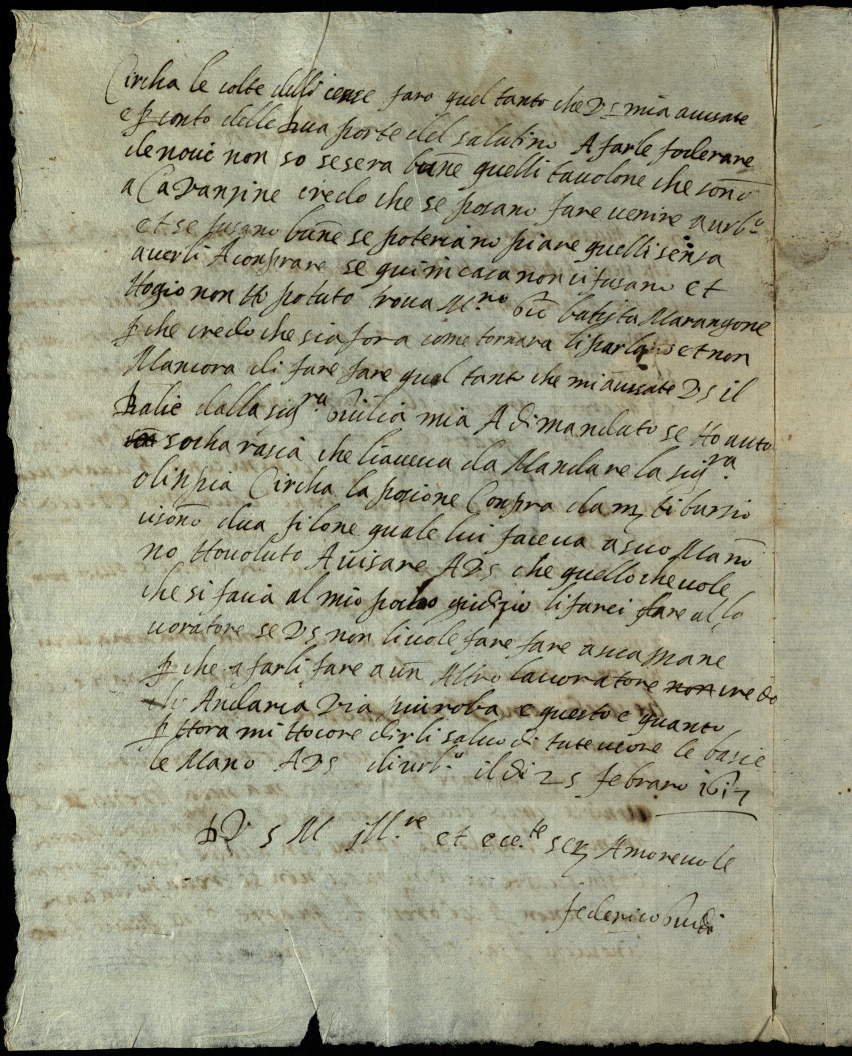 Circha le colte delli cense faro quel tanto che VS mia avisate
e p conto delle dua porte del salutino A farle foderare
de novi non so se sera bune quelli tavolone che sono
a Cavansine credo che se posano fare venire a urb.o
et se fusano bune se poteriano piare quelli sensa
averli A conprare se qui in casa non vi fusano et
Hogio non Ho potuto trova M.ro Gio batista Marangone
p che credo che sia fora come tornara li parlaro et non
Mancora di fare fare quel tanto che mi avisate VS il
balie dalla sig.ra Giulia mia A dimandato se Ho auto
socha rascia che li aveva da Mandare la sig.ra
olinpia Circha la posione Conpra da m tiburzio
visono dua pilone quale lui faceva a suo Mano
no Ho voluto Avisare A VS che quello che vole
che si facia al mio poco giudizio li farei fare al la
voratore se VS non li vole fare fare a sua mane
p che a farli fare a un Altro lavoratore credo
che Andaria via piu roba e questo e quanto
p Hora mi Hocore dirli saluo di tute core le basie
le Mano A VS di urb.o il di 25 febraro 1617
D V S M Ill.re et ece.te ser Amorevole
federico Guidi